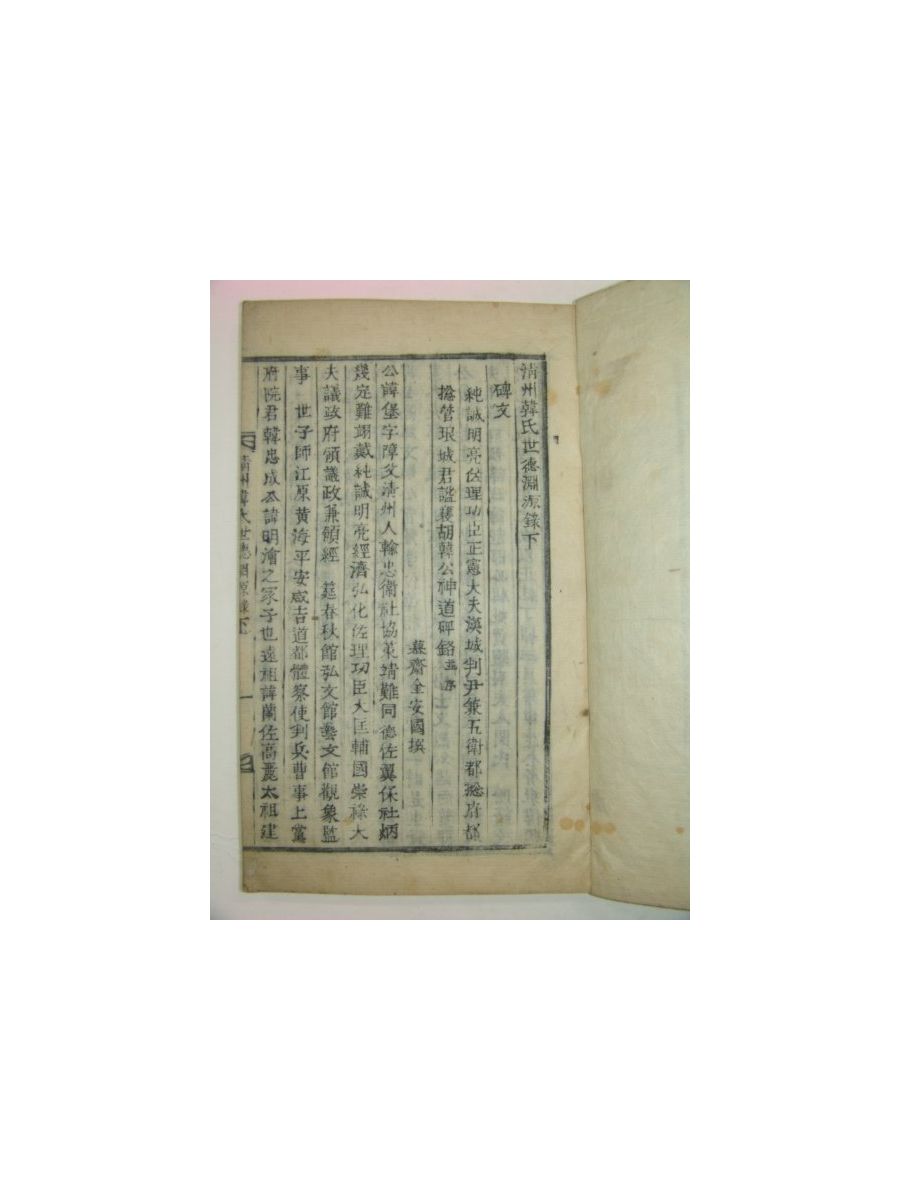 清州韓氏世德淵源錄下
碑文
純誠明亮佐理功臣正憲大夫漢城判尹兼五衛都摠府都
摠管琅城君謚襄胡韓公神道碑銘 並序
慕齋金安國撰
公諱堡字障父清州人輸忠衛社協策靖難同德佐翼保社炳
幾定難翊戴純誠明亮經濟弘化佐理功臣大匡輔國崇祿大
夫議政府領議政兼領經 筵春秋館弘文館藝文館觀象監
事 世子師江原黃海平安咸吉道都體察使判兵曹事上黨
府院君韓忠成公諱明澮之冢子也遠祖諱蘭佐高麗太祖建
清州韓氏世德淵源錄下 一